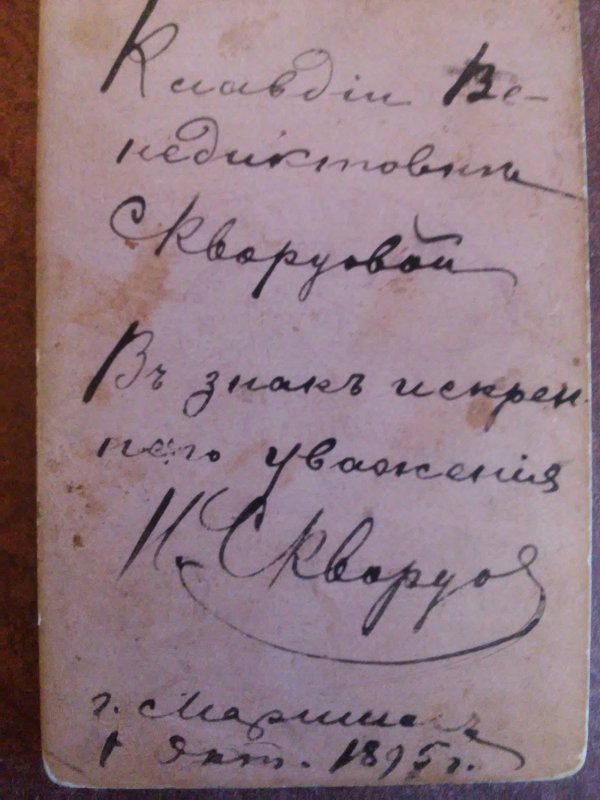 Клавдіи Ве-
недиктовнѣ
Скворцовой
Въ знакъ искрен
няго уваженія
Скворцов
г.
1 1895 г.